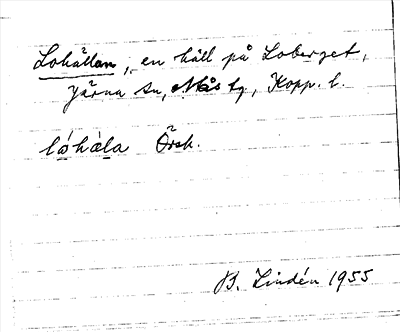 Lohällan, en häll på Loberget,
Järna sn, Nås tg, Kopp. l.
lóhàla Örsk.
B. Lindén 1955